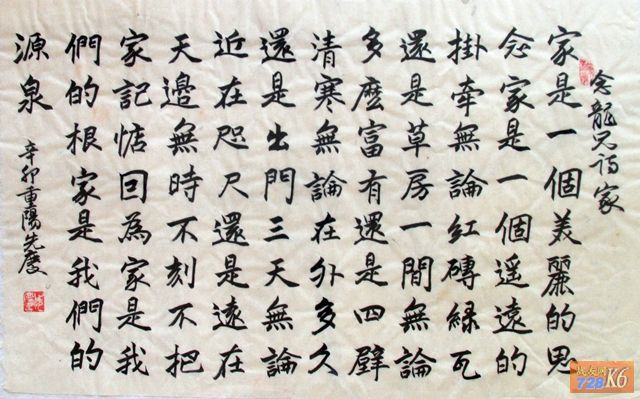 念龍兄詩家
家是一個美麗的思
念家是一個遥遠的
掛牽無論紅磚緑瓦
還是草房一間無論
多麽富有還是四壁
清寒無論在外多久
還是出門三天無論
近在咫尺還是遠在
天邊無時不刻不把
家記惦回為家是我
們的根家是我們的
源泉
辛卯重陽先慶
战友网
728 K6